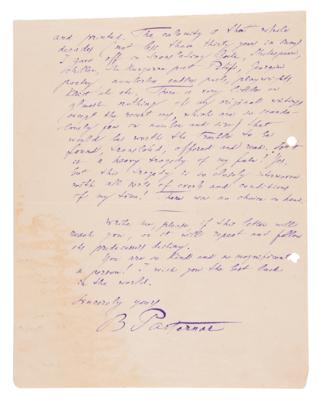 and printed. The calamity is that whole
decades not less than thirty years in
I gave off in translating Goethe, Shakespeare,
Schiller, the Hungarian poet Petöfi, Georgian
poetry numberless entire poets, playwrights
Kleist a. oth. There is very little or
almost nothing of my original writings
except the recent ones which are so
few in number and worth that
would be worth the trouble to be
found, translated, offered and read. Is it
a heavy tragedy of my fate? Yes,
but this tragedy is so closely interwoven
with all sets of events and conditions
of my time! There was no choice in hand.
Write me, please if this letter will
reach you, or it will repeat and follow
its predecessors destiny.
You are so kind and so magnificent
a person! I wish you the best luck
in the world.
Sincerely yours
B Pasternak